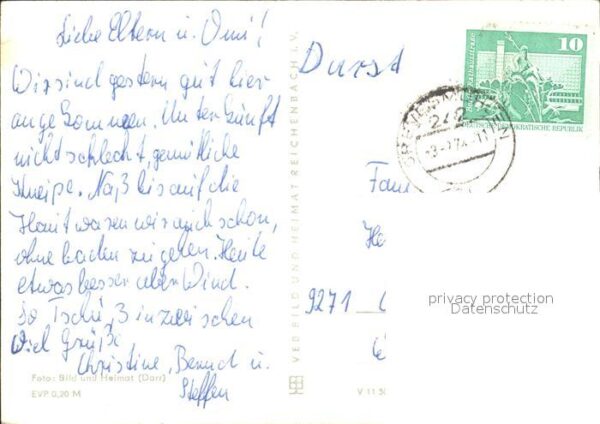 Liebe Eltern u. Omi!
Wir sind gestern gut hier
angekommen. Unterkunft
nicht schlecht, gemütliche
Kneipe. Naß bis auf die
Haut waren wir auch schon,
ohne baden zu gehen. Heute
etwas besser aber Wind.
So Tschüß inzwischen
Viel Grüße
Christine, Bernd u.
Steffen
Foto: Bild und Heimat (Darr)
EVP 0,20 M
VEB BILD UND HEIMAT REICHENBACH I. V.
V 11 50
Durst
10
DEUTSCHE DEMOKRATISCHE REPUBLIK
242
Fam
He
9271
privacy protection
Datenschutz